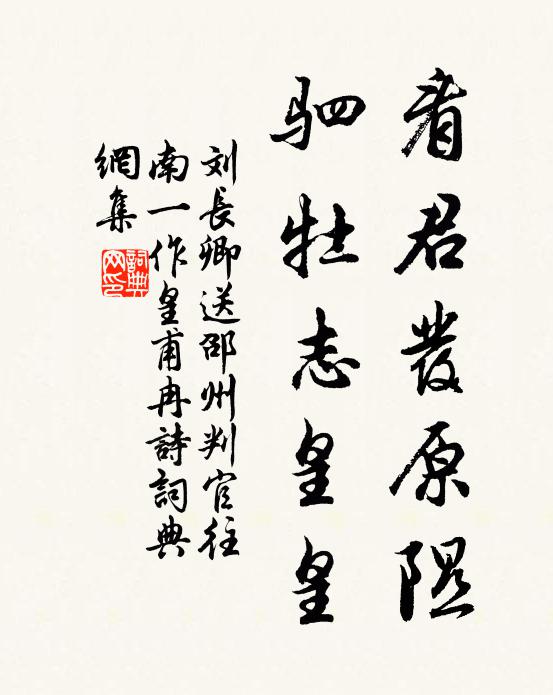 看君發原隰
驷牡志皇皇
刘長卿送邵州判官往
南一作皇甫冉詩詞典
網集
詞典
网印